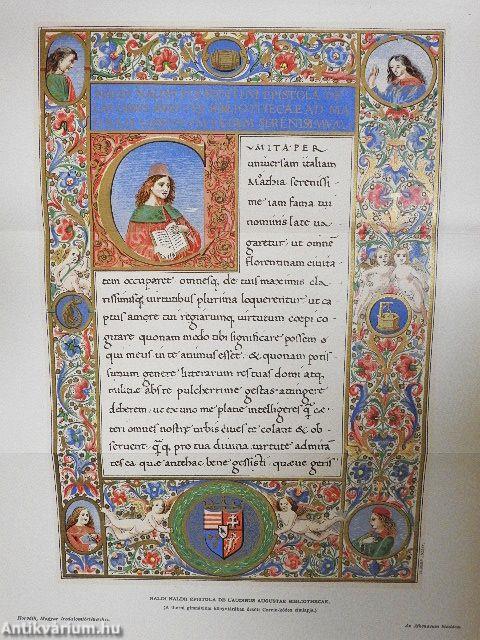 NALDI NALDII FLORENTINI EPISTOLA DE
LAUDIBUS AUGUSTAE BIBLIOTHECAE AD MA
SERENISSIMUM
UM ITA PER
universam italiam
Mathia serenissi-
me iam fama tui
nominis late va
garetur: ut omnē
florentinam civita
tem occuparet omnesq; de tuis maximis cla-
rissimisq; virtutibus plurima loquerentur: ut ca
ptus amore tui regiarumq; virtutum coepi co-
gitare quonam modo tibi significare possem
qui meus in te animus esset. & quonam potis-
simum genere litterarum res tuas domi atq;
militiae abs te pulcherrime gestas attingere
deberem: ut ex uno me plane intelligeres q̄ ce-
teri omnes nostrę urbis cives te colant & ob-
servent: q̄q; pro tua divina virtute admirā
tes ea quae antehac bene gessisti: quaeve geris
NALDI NALDII EPISTOLA DE LAUDIBUS AUGUSTAE BIBLIOTHECAE.
(A thorni gimnázium könyvtárában őrzött Corvin-kódex címlapja.)
Beöthy, Magyar Irodalomtörténetéhez.
Az Athenaeum kiadása.
Antikvarium.hu